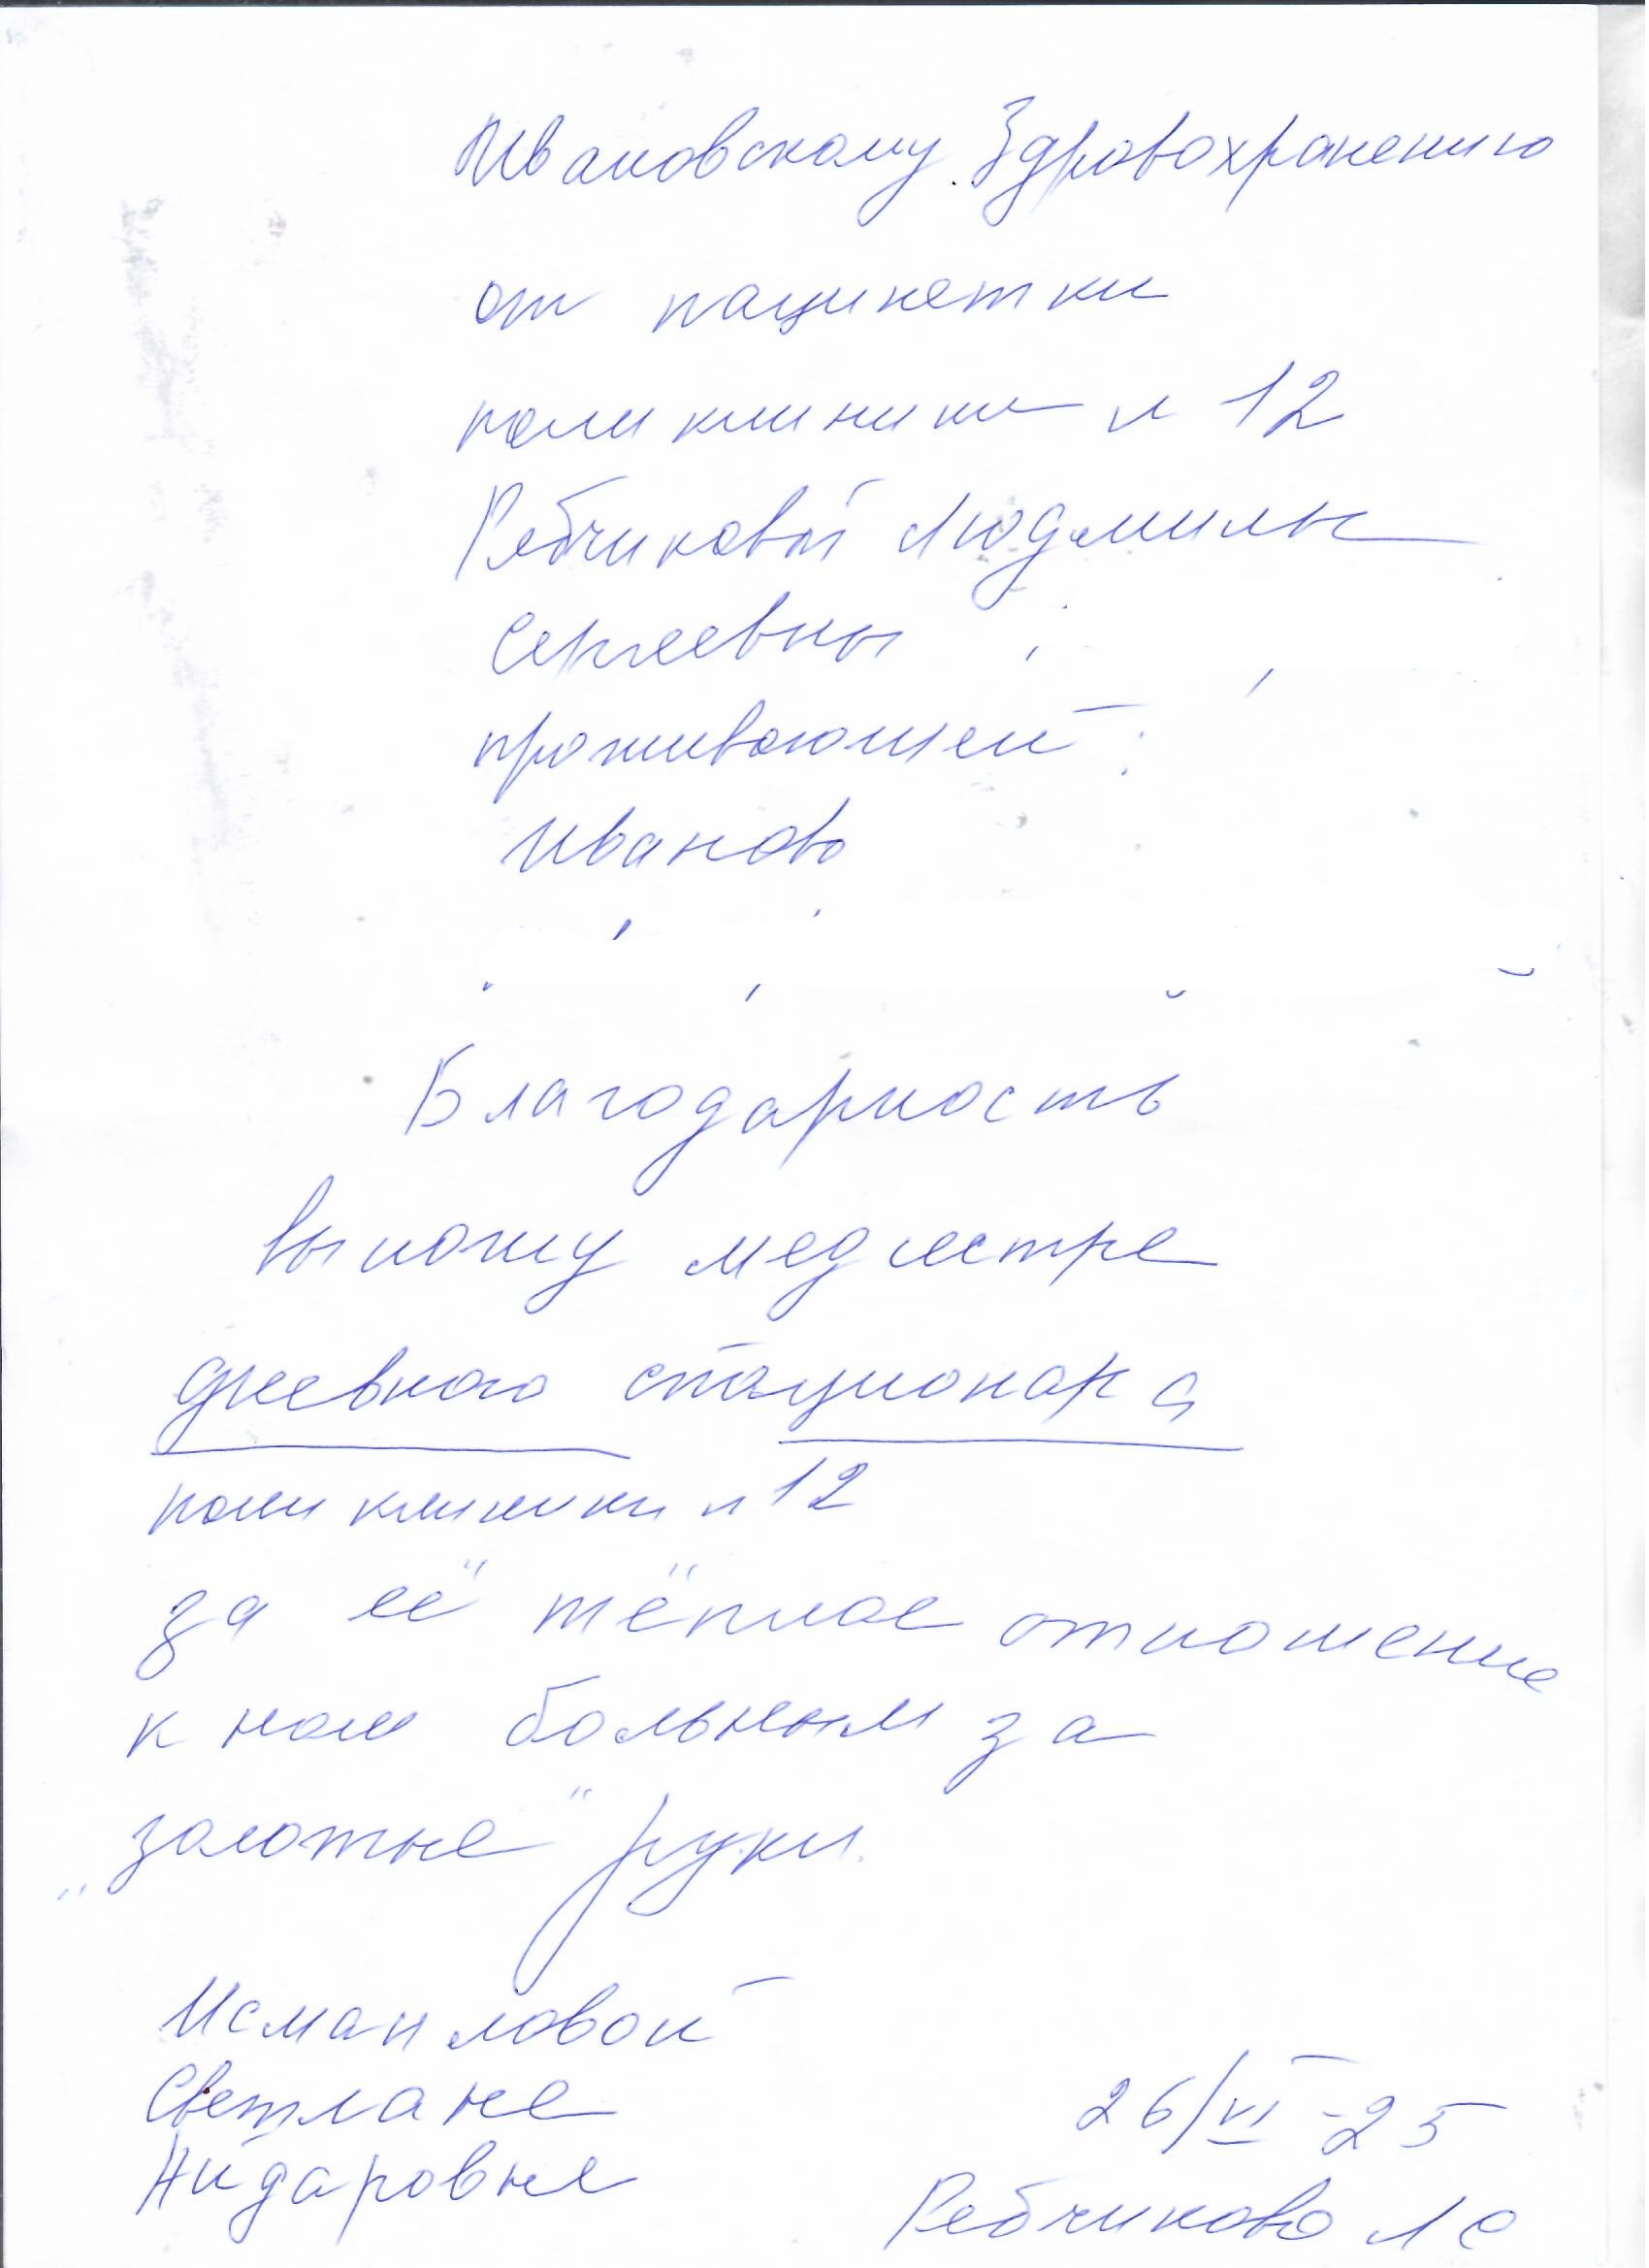 Ивановскому Здровохранению
от пациметки
поликлиники № 12
Рябчиковой Людмилы
Сергеевны
проживающей
Иваново
Благодарность
выношу медсестре
дневного стационара
поликлиники № 12
за её тёплое отношение
к нам больным за
"золотые" руки.
Исмаиловой
Светлане
Айдаровне
26/VI-25
Рябчикова ЛС